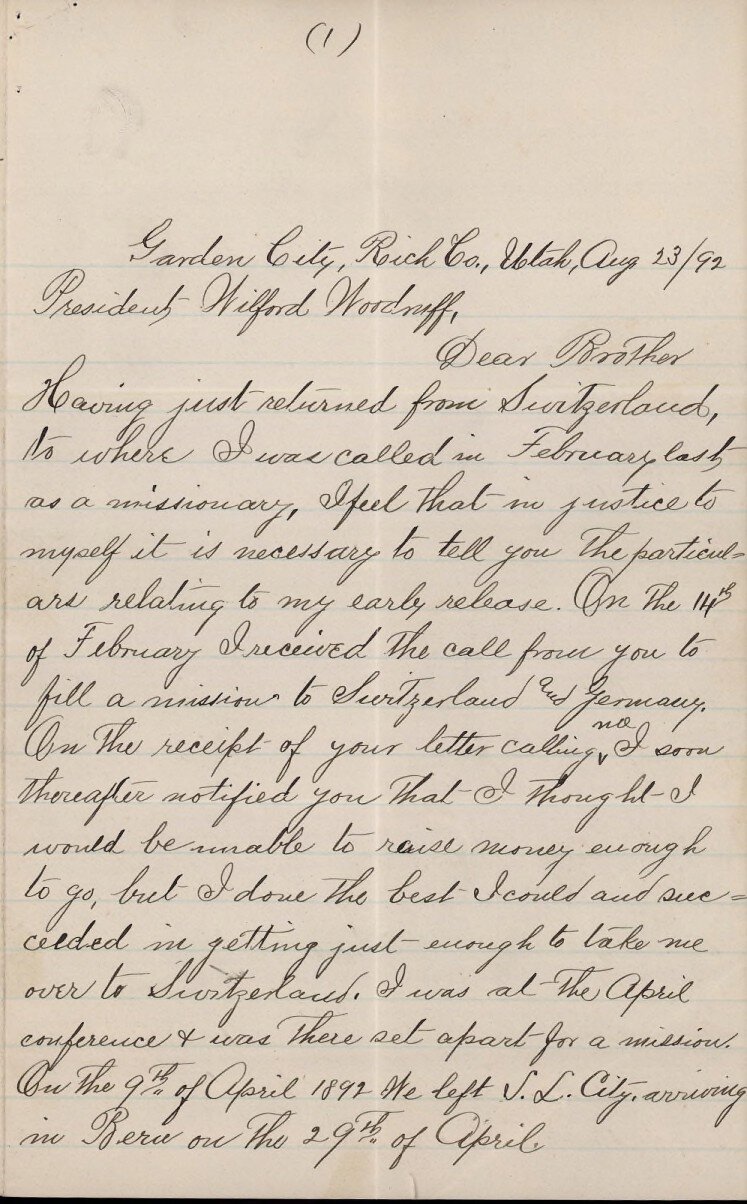 (1)
Garden City, Rich Co., Utah, Aug 23/92
President Wilford Woodruff,
Dear Brother
Having just returned from Switzerland,
to where I was called in February last
as a missionary, I feel that in justice to
myself it is necessary to tell you the particul=
ars relating to my early release. On the 14th
of February I received the call from you to
fill a mission to Switzerland and Germany.
On the receipt of your letter calling me I soon
thereafter notified you that I thought I
would be unable to raise money enough
to go, but I done the best I could and suc=
ceeded in getting just enough to take me
over to Switzerland. I was at the April
conference & was there set apart for a mission.
On the 9th of April 1892 We left S. L. City, arriving
in Bern on the 29th of April.